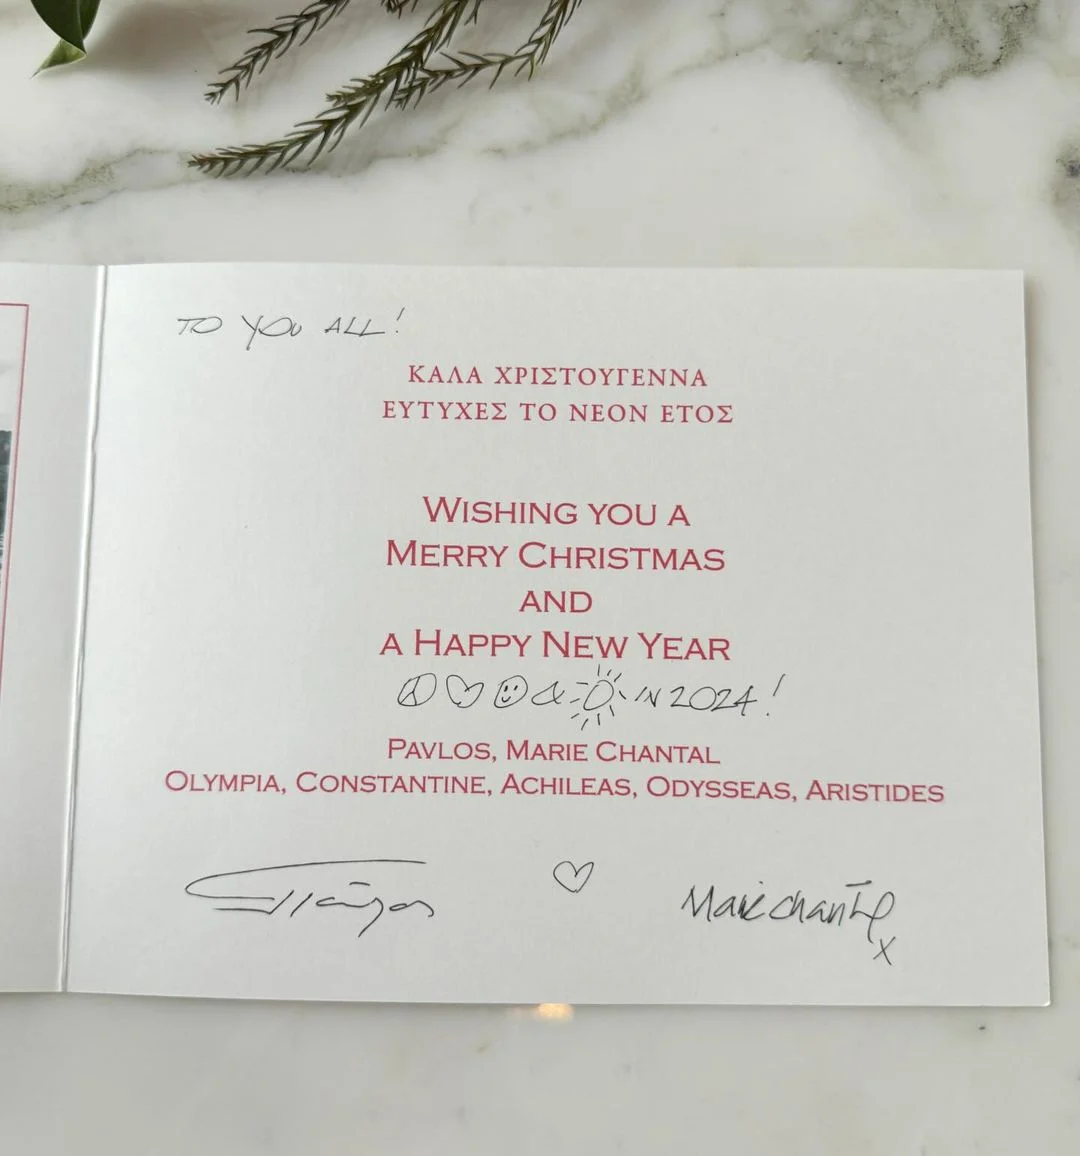 TO YOU ALL!
ΚΑΛΑ ΧΡΙΣΤΟΥΓΕΝΝΑ
ΕΥΤΥΧΕΣ ΤΟ ΝΕΟΝ ΕΤΟΣ
WISHING YOU A
MERRY CHRISTMAS
AND
A HAPPY NEW YEAR
& IN 2024!
PAVLOS, MARIE CHANTAL
OLYMPIA, CONSTANTINE, ACHILEAS, ODYSSEAS, ARISTIDES
Παύλος
Marie chantal
x